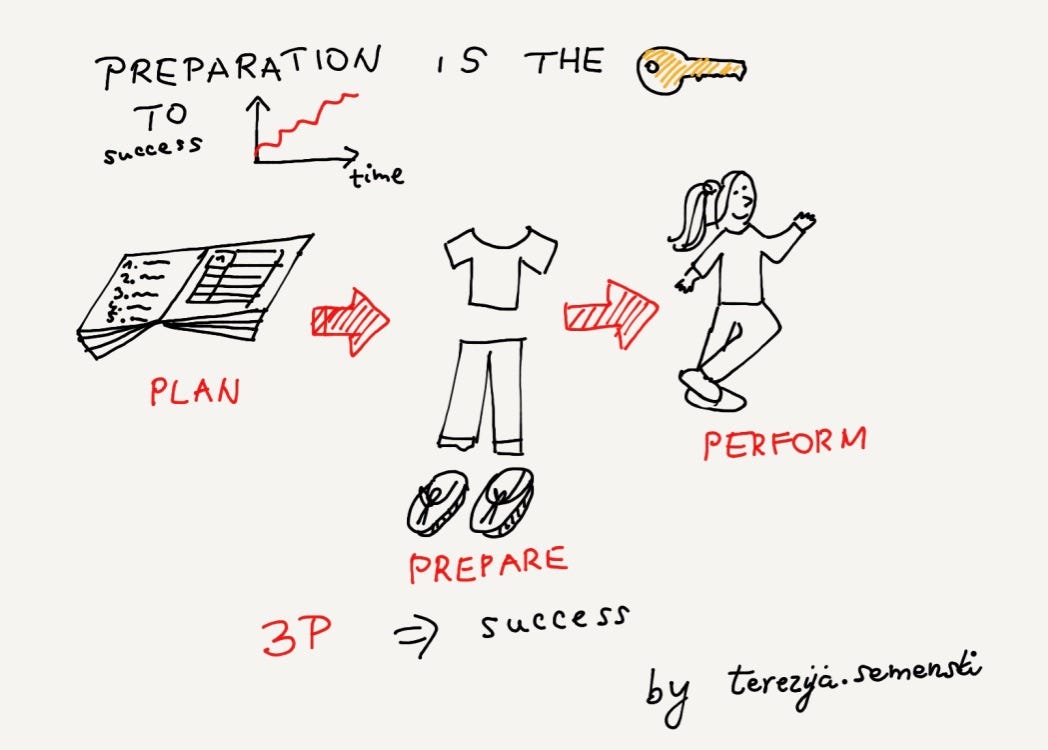 PREPARATION IS THE
TO
success
time
1.
2.
3.
4.
5.
PLAN
PREPARE
PERFORM
3P => success
by terezija.semenski